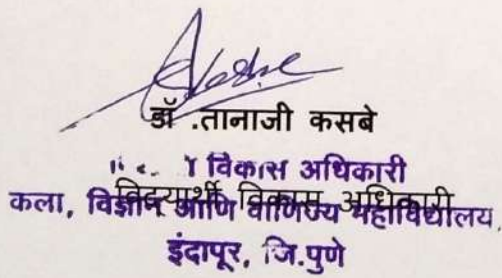 डॉ .तानाजी कसबे
विकास अधिकारी
विद्यार्थी विकास अधिकारी
कला, विज्ञान आणि वाणिज्य महाविद्यालय,
इंदापूर, जि.पुणे